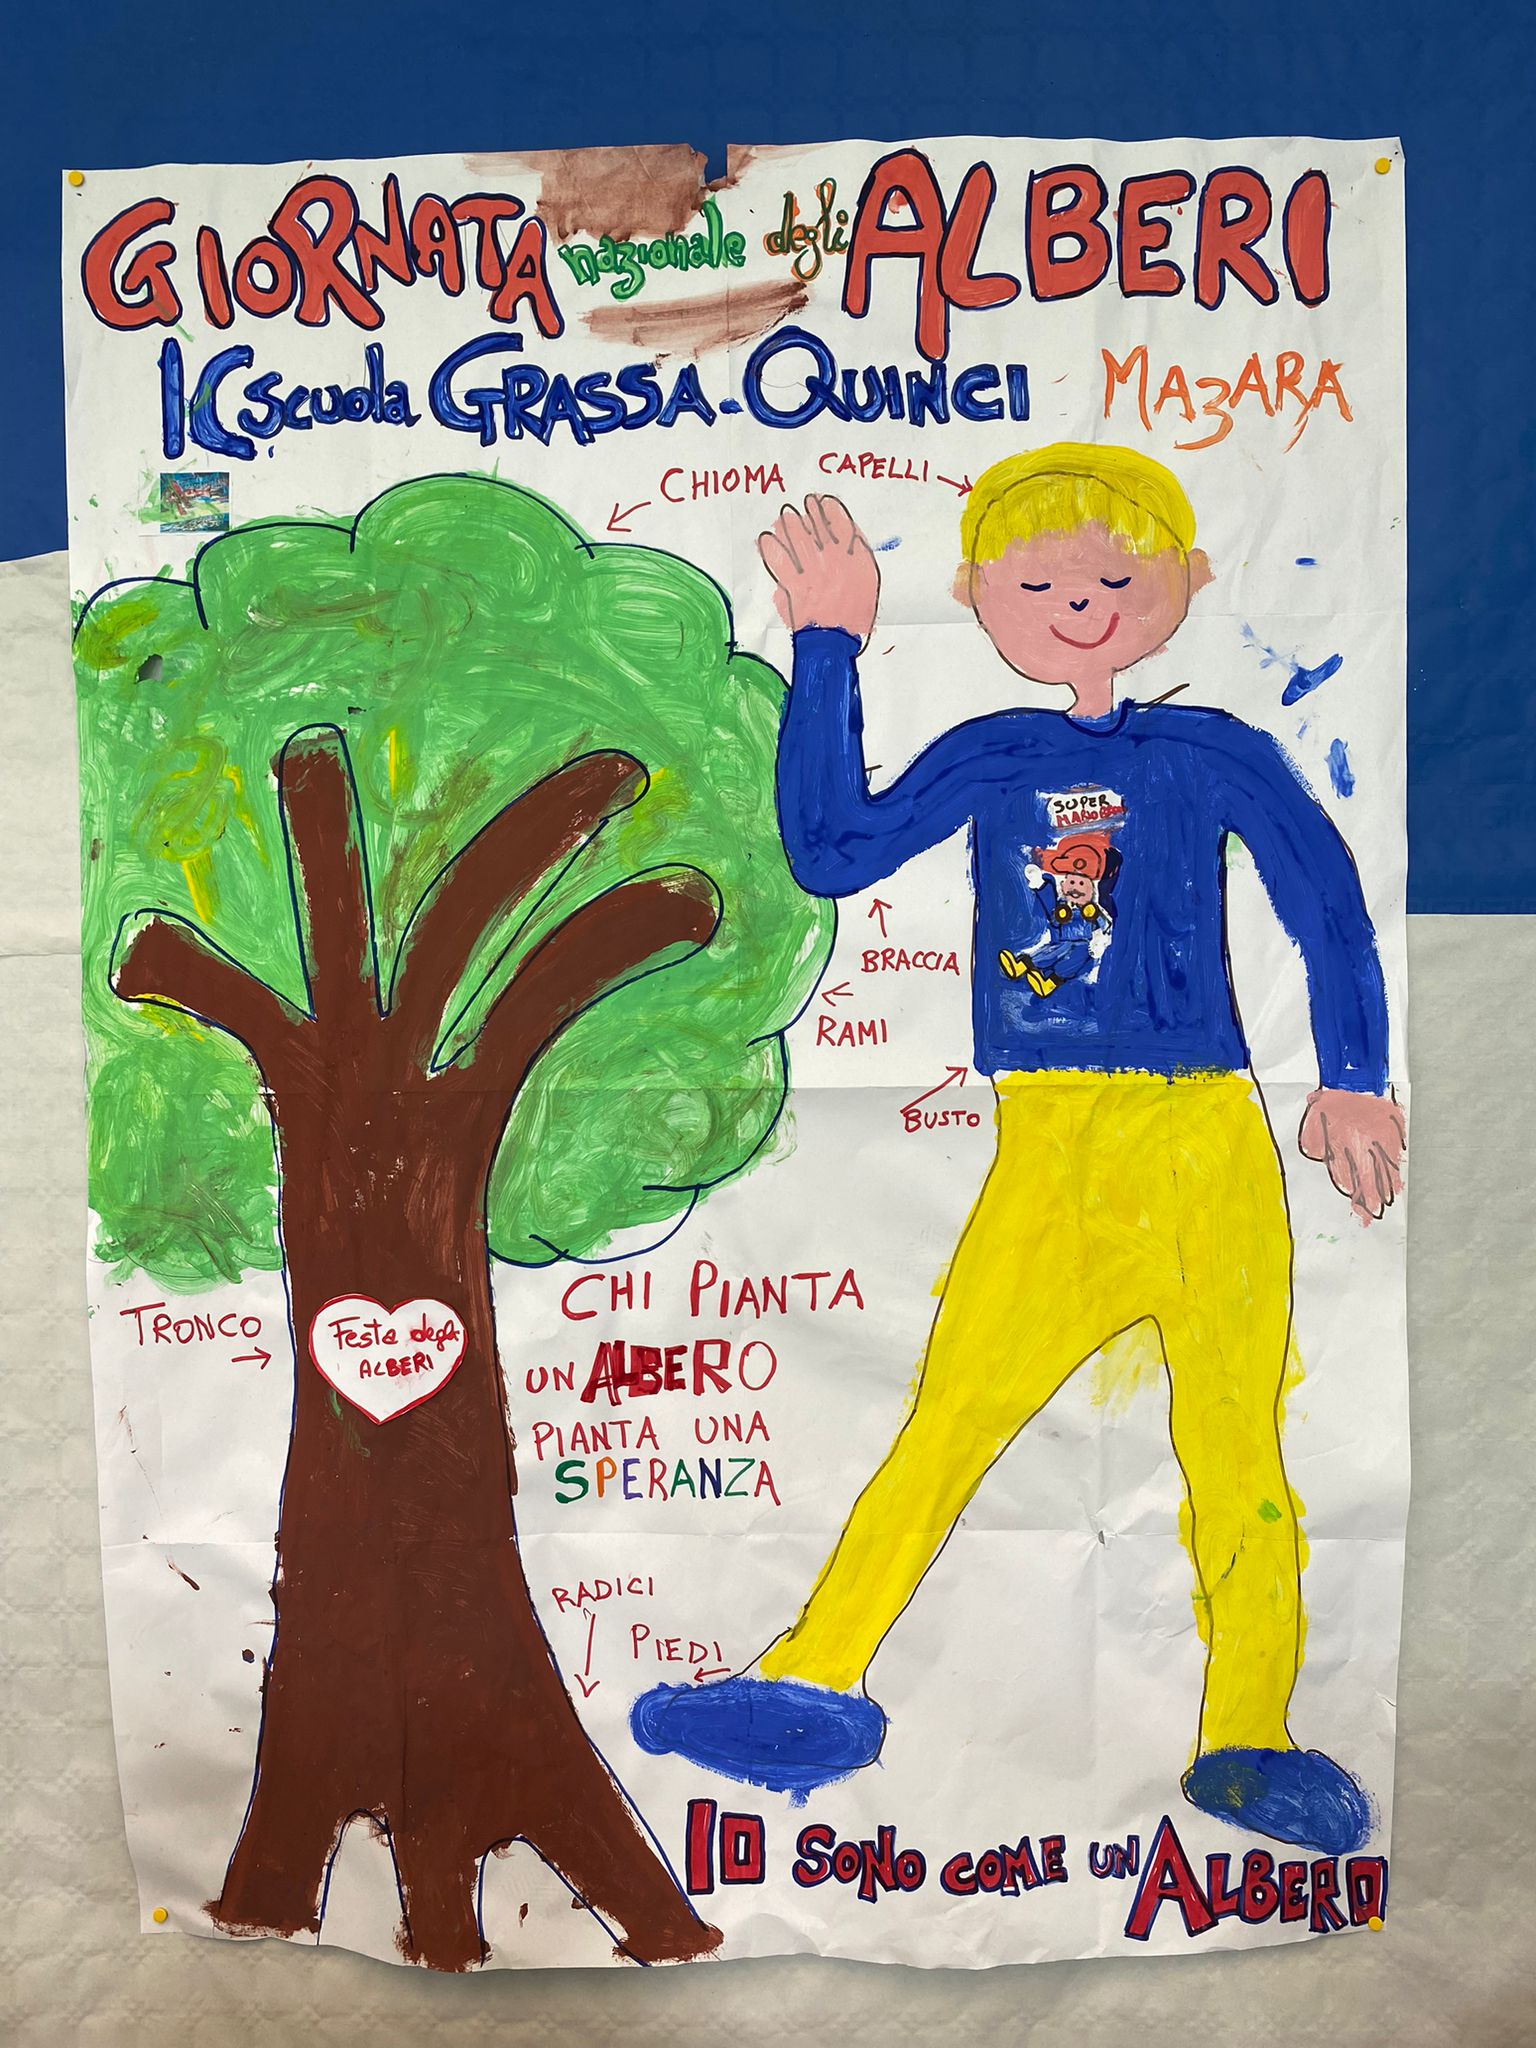 GIORNATA nazionale degli ALBERI
IC scuola GRASSA-QUINCI MAZARA
CHIOMA CAPELLI
SUPER
MARIO
BRACCIA
RAMI
BUSTO
TRONCO
Festa degli
ALBERI
CHI PIANTA
UN ALBERO
PIANTA UNA
SPERANZA
RADICI
PIEDI
IO SONO COME UN ALBERO